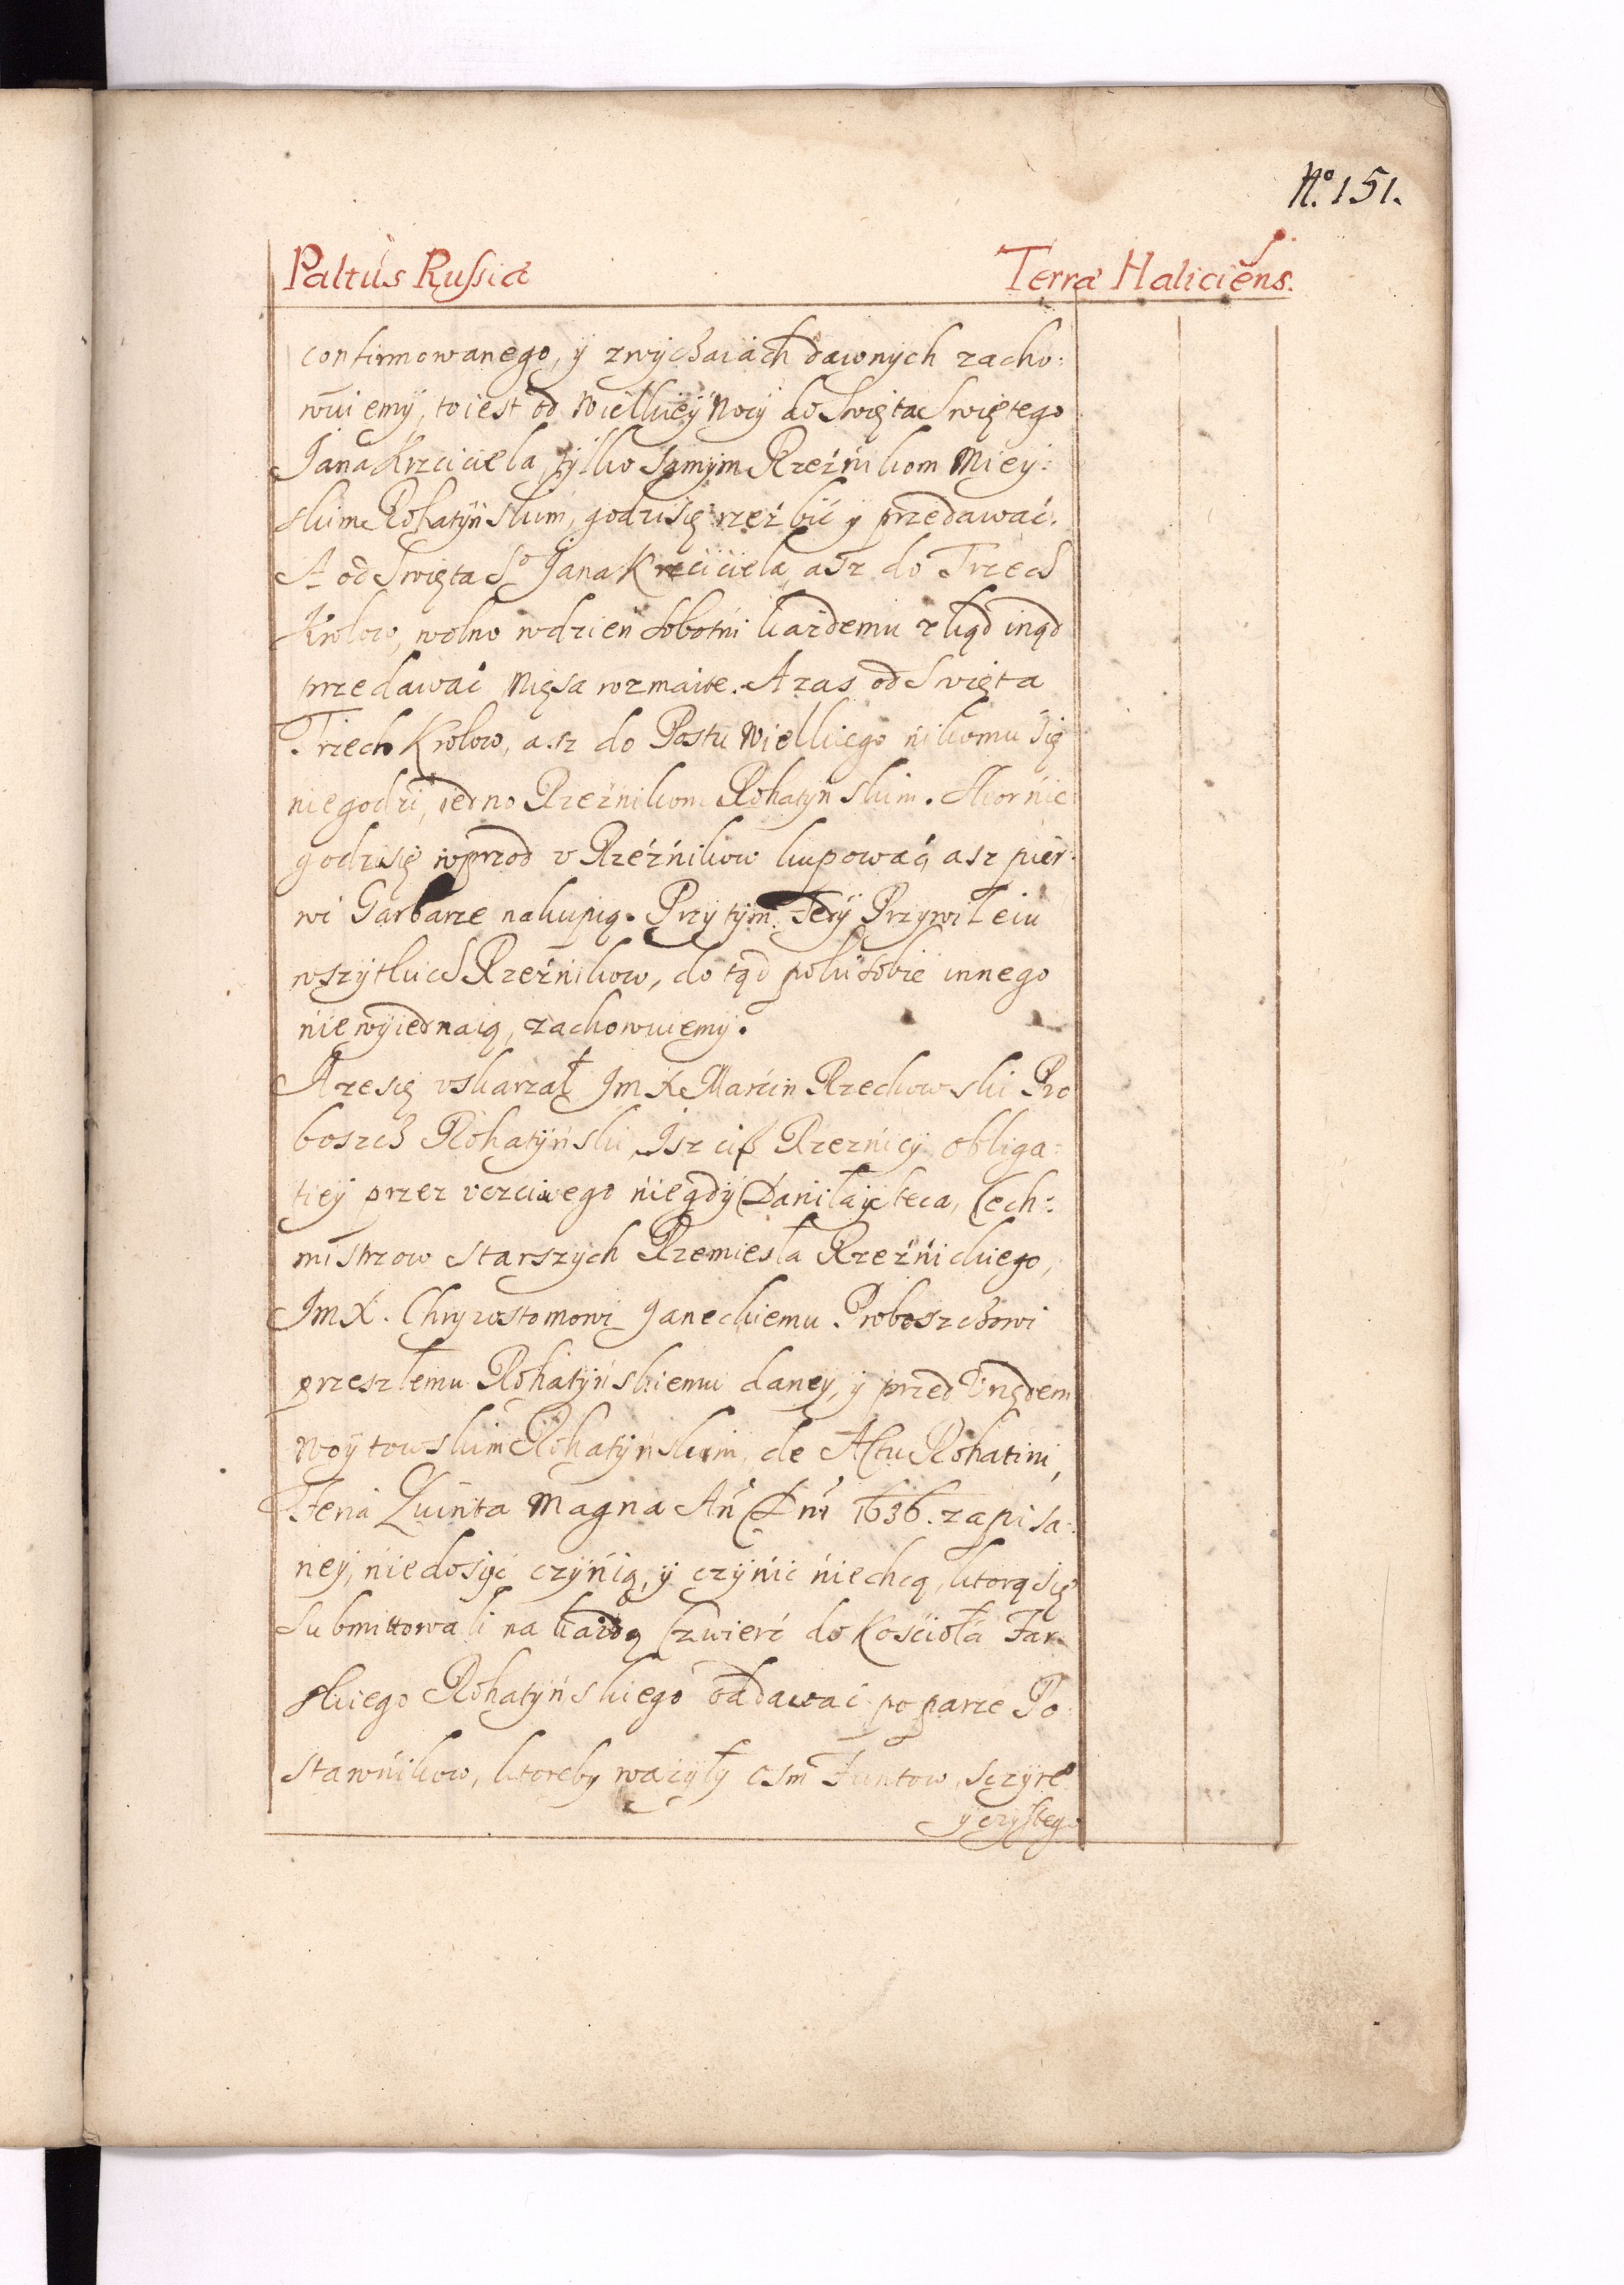 N.º 151.
Paltus Russiæ Terræ Haliciens.
confirmowanego, ÿ zwÿczaiach dawnych zacho:
wuiemÿ, to iest od Wielkieÿ Nocÿ do Swięta Swiętego
Jana Krzciciela, tÿlko samÿm Rzeźnikom Mieÿ:
skim Rohatÿnskim, godzi się rzeź bić ÿ przedawać.
A od Swięta Sº Jana Krzciciela, asz do Trzech
Krolow, wolno w dzień Sobotni każdemu z kąd inąd
przedawać Mięsa rozmaite. A zas od Swięta
Trzech Krolow, asz do Postu Wielkiego nikomu się
niegodzi, iedno Rzeźnikom Rohatÿnskim. Skor nie
godzi się wprzod v Rzeźnikow kupować, asz pier:
wi Garbarze nakupią. Przÿ tÿm tedÿ Przywileiu
wszÿtkich Rzeźnikow, do tąd poki sobie innego
nie wÿiednaią, zachowuiemÿ.
A ze się vskarzał Jm X Marcin Rzechowski Pro
boszcz Rohatÿński, Isz cisz Rzeznicÿ, obliga:
tieÿ przez vczciwego niegdÿ Daniła ÿ Steca, Cech:
mistrzow starszÿch Rzemiesła Rzeźnickiego,
Jm X. Chryzostomowi Janeckiemu Proboszczowi
przeszłemu Rohatÿńskiemu daneÿ, ÿ przed Vrzędem
Woÿtowskim Rohatÿnskim, de Actu Rohatini,
Feria Quinta Magna An Dni 1636. zapisa:
neÿ, niedosÿć czÿnią, ÿ czÿnić niechcą, ktorą się
submittowali na każdą Czwierć do Kościoła Far
skiego Rohatÿńskiego oddawać po parze Po
stawnikow, ktoreby ważÿłÿ osm Funtow, sczÿre
ÿ czÿstego